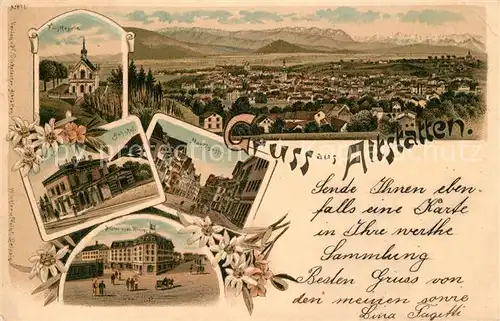 Gruss aus Altstätten.
Sende Ihnen eben-
falls eine Karte
in Ihre werthe
Sammlung
Besten Gruss von
den meinen sowie
Lina